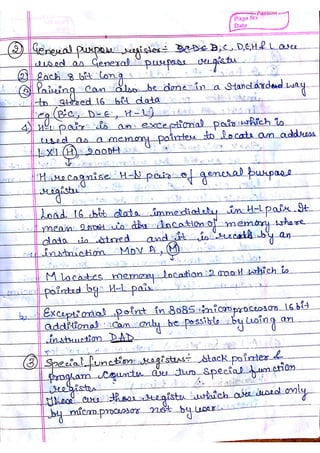 Page No
Date
② General purpose register:- B,C, D,E,H & L are
used as General purpose register
② Each 8 bit long
③ Pairing can also be done in a standard way
to stored 16 bit data
eg (B-C, D-E, H-L)
4) H-L pair is an exceptional pair which is
used as a memory pointer to locate an address
LXI (H), 2000H
H recognise H-L pair of general purpose
register
Load 16 bit data immediately in H-L pair. It
mean 2000H is the location of memory where
data is stored and it is by an
instruction MOV A, (M)
M Locates memory location 2000H which is
pointed by H-L pair
Exceptional point in 8085 microprocessor 16 bit
additional can only be possible by using an
instruction DAD
③ Special function registers:- Stack pointer &
program counter are two special function
register
These are those register which are used only
by microprocessor not by user